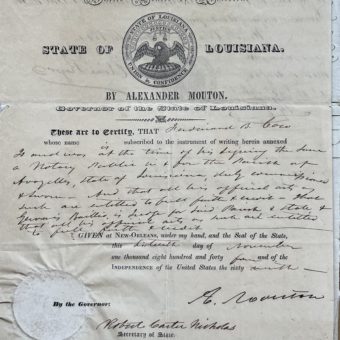 STATE OF LOUISIANA.
STATE OF LOUISIANA
UNION & CONFIDENCE
BY ALEXANDER MOUTON.
Governor of the State of Louisiana.
These are to Certify, THAT Ferdinand B. Coco
whose name is subscribed to the instrument of writing herein annexed
is and was, at the time of his signing the same
a Notary Public in & for the Parish of
Avoyelles, state of Louisiana, duly commissioned
& sworn. And that all his official acts as
such are entitled to full faith & credit & that
Gervais Baillio, is for said Parish & state &
that all his official acts as such are entitled
to full faith & credit
GIVEN at NEW-ORLEANS, under my hand, and the Seal of the State,
this day of November
one thousand eight hundred and forty four and of the
INDEPENDENCE of the United States the sixty ninth
A. Mouton
By the Governor:
Robert Carter Nicholas
Secretary of State.